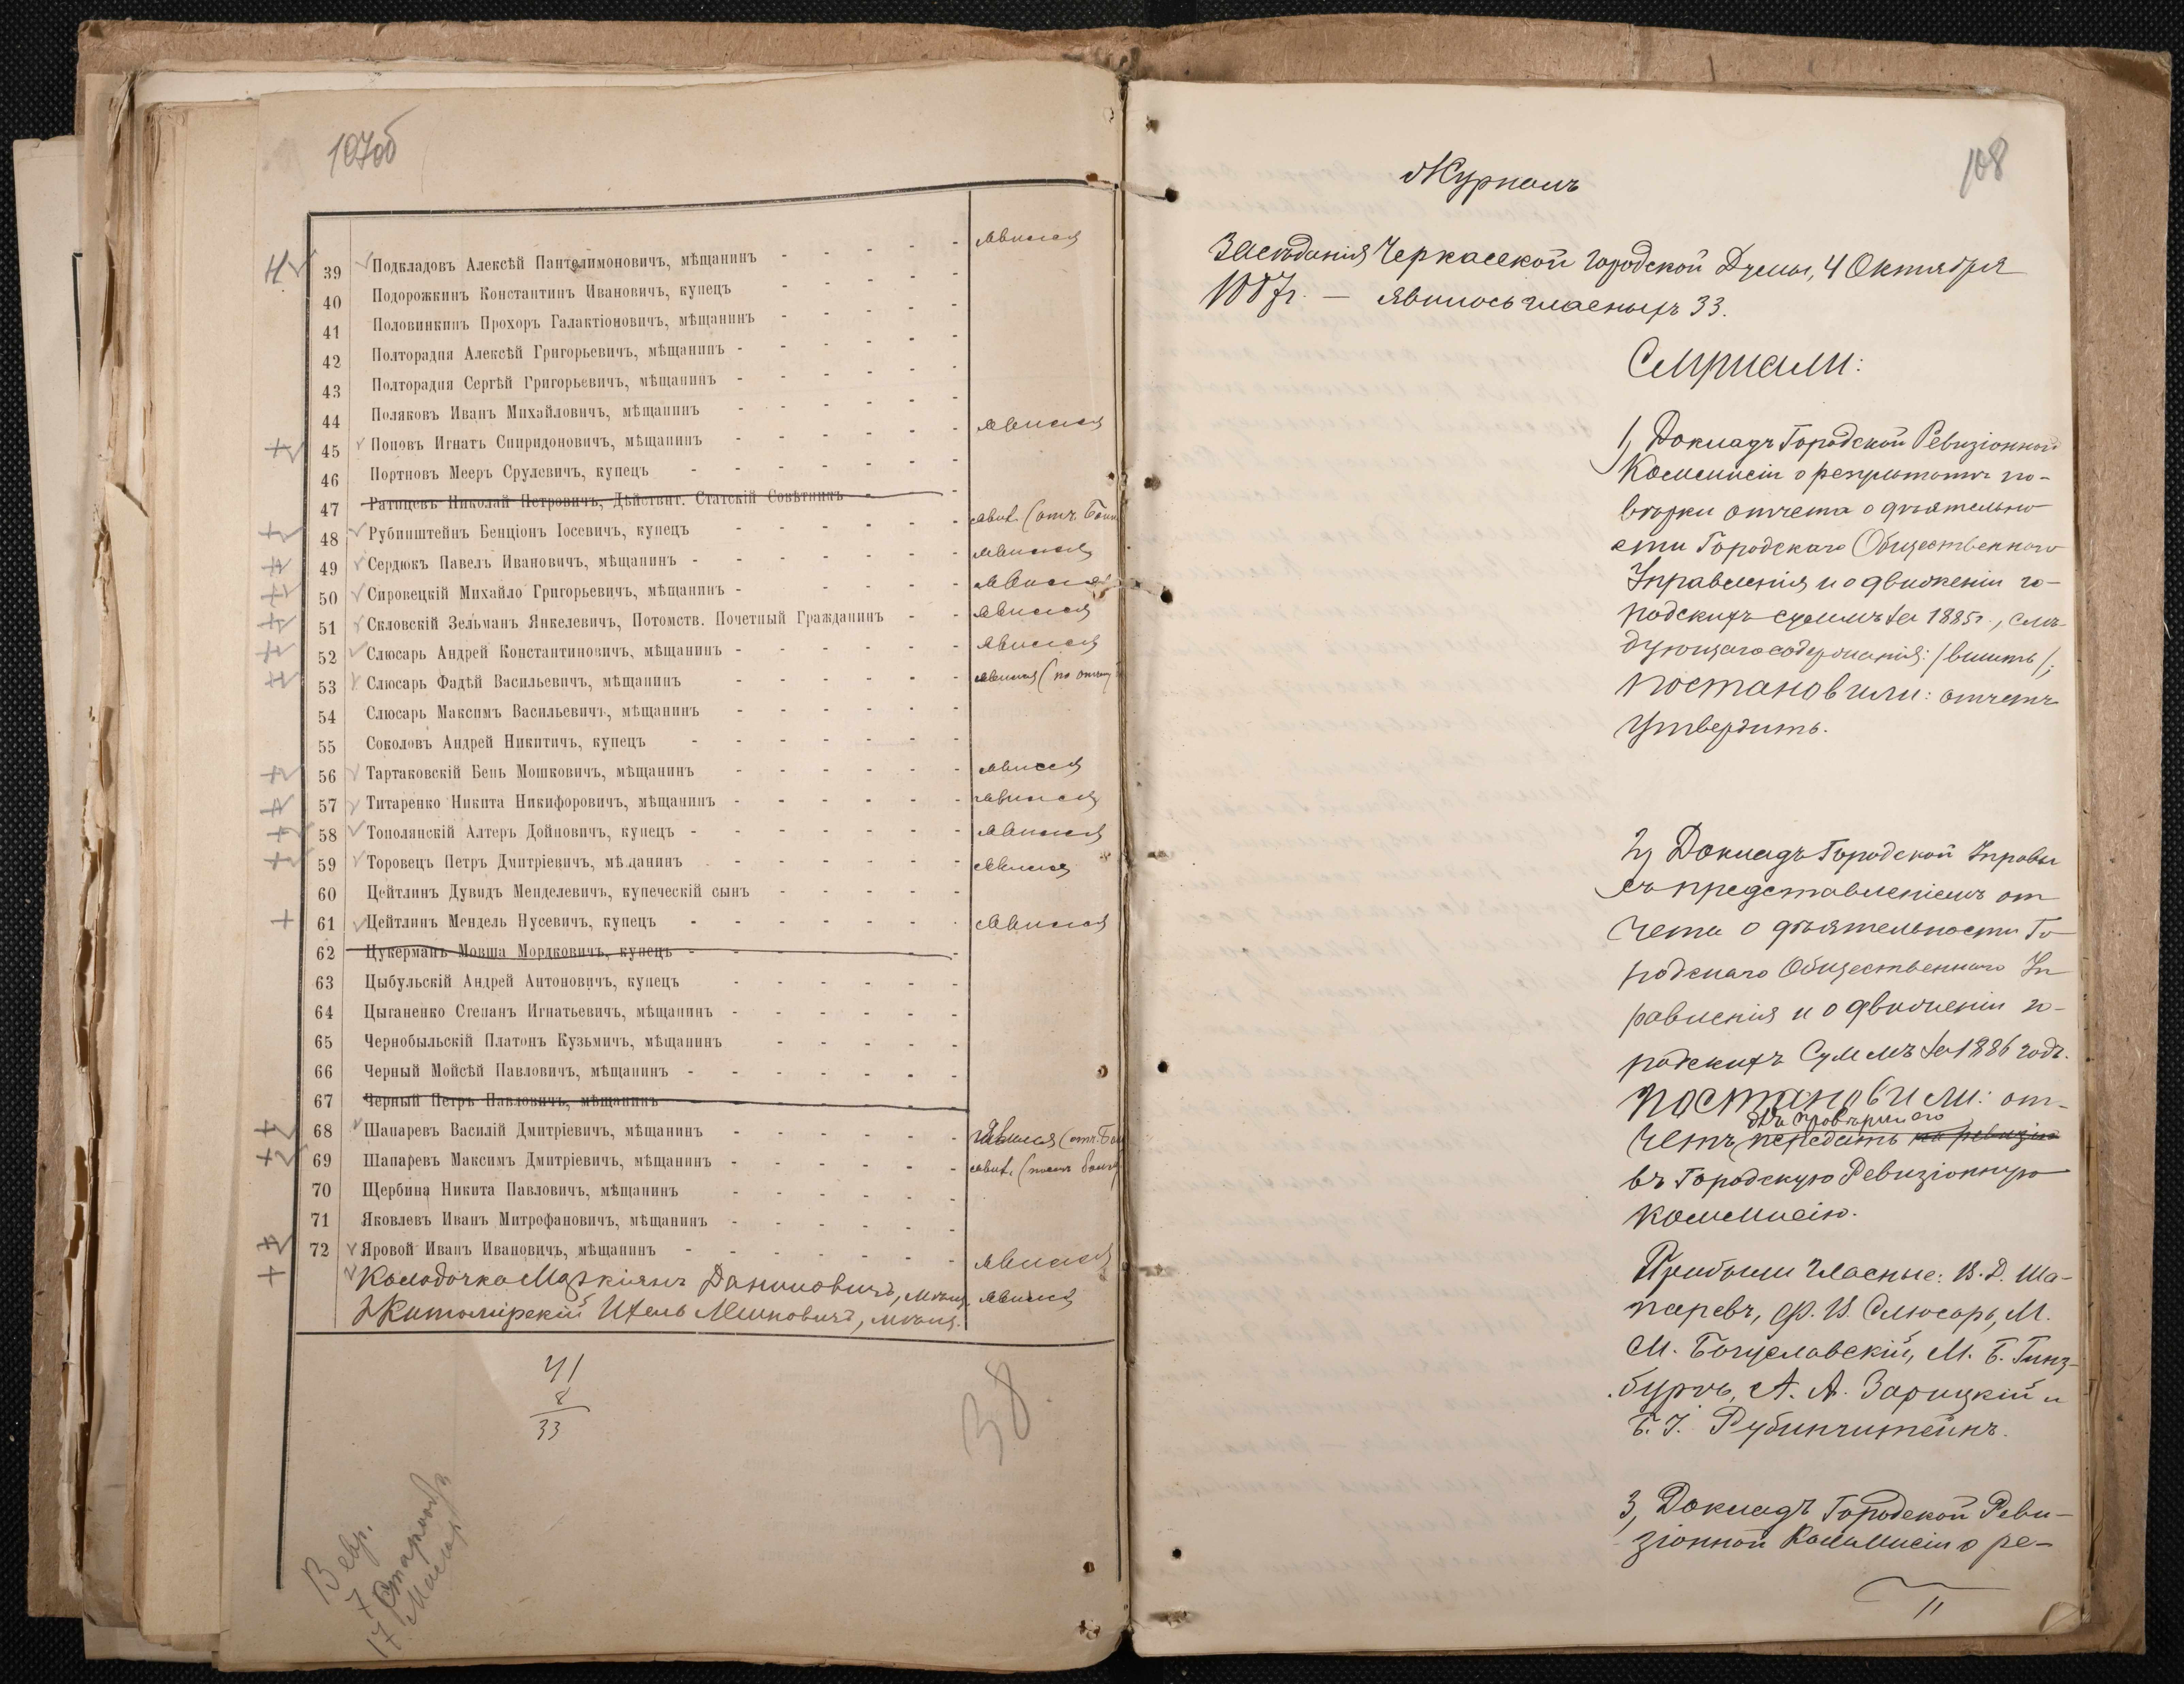 107об
39 Подкладовъ Алексѣй Пантелимоновичъ, мѣщанинъ - - - - явился
40 Подорожкинъ Константинъ Ивановичъ, купецъ - - - -
41 Половинкинъ Прохоръ Галактіоновичъ, мѣщанинъ - - - - -
42 Полторацня Алексѣй Григорьевичъ, мѣщанинъ - - - - - -
43 Полторацня Сергѣй Григорьевичъ, мѣщанинъ - - - - - -
44 Поляковъ Иванъ Михайловичъ, мѣщанинъ - - - - - -
45 Поповъ Игнатъ Спиридоновичъ, мѣщанинъ - - - - - - явился
46 Портновъ Мееръ Срулевичъ, купецъ - - - - - - -
47 Ратицевъ Николай Петровичъ, Дѣйствит. Статскій Совѣтникъ - -
48 Рубинштейнъ Бенціонъ Іосевичъ, купецъ - - - - - - явил. (отъ
49 Сердюкъ Павелъ Ивановичъ, мѣщанинъ - - - - - - - явился
50 Сировецкій Михайло Григорьевичъ, мѣщанинъ - - - - - явился
51 Скловскій Зельманъ Янкелевичъ, Потомств. Почетный Гражданинъ - - явился
52 Слюсарь Андрей Константиновичъ, мѣщанинъ - - - - - - явился
53 Слюсарь Фадѣй Васильевичъ, мѣщанинъ - - - - - - явился (по
54 Слюсарь Максимъ Васильевичъ, мѣщанинъ - - - - - -
55 Соколовъ Андрей Никитичъ, купецъ - - - - - - -
56 Тартаковскій Бень Мошковичъ, мѣщанинъ - - - - - - явился
57 Титаренко Никита Никифоровичъ, мѣщанинъ - - - - - - явился
58 Тополянскій Алтеръ Дойновичъ, купецъ - - - - - - - явился
59 Торовецъ Петръ Дмитріевичъ, мѣщанинъ - - - - - - явился
60 Цейтлинъ Дувидъ Менделевичъ, купеческій сынъ - - - - -
61 Цейтлинъ Мендель Нусевичъ, купецъ - - - - - - - явился
62 Цукерманъ Мовша Мордковичъ, купецъ - - - - - - -
63 Цыбульскій Андрей Антоновичъ, купецъ - - - - - -
64 Цыганенко Степанъ Игнатьевичъ, мѣщанинъ - - - - - -
65 Чернобыльскій Платонъ Кузьмичъ, мѣщанинъ - - - - -
66 Черный Мойсѣй Павловичъ, мѣщанинъ - - - - - - -
67 Черный Петръ Павловичъ, мѣщанинъ
68 Шапаревъ Василій Дмитріевичъ, мѣщанинъ - - - - - - явился (
69 Шапаревъ Максимъ Дмитріевичъ, мѣщанинъ - - - - - - явил. (
70 Щербина Никита Павловичъ, мѣщанинъ - - - - - -
71 Яковлевъ Иванъ Митрофановичъ, мѣщанинъ - - - - - -
72 Яровой Иванъ Ивановичъ, мѣщанинъ - - - - - - - явился
Колодочка Даниловичъ, мѣщ. явился
Житомірскій Ицель Мошковичъ, мѣщ.
41
8
33
38
В евр.
7
17
108
Журналъ
Засѣданія Черкасской Городской Думы, 4 Октября
1887г. — явилось гласныхъ 33.
Слушали:
1, Докладъ Городской Ревизіонной
Коммисіи о результатахъ по-
вѣрки отчета о дѣятельно
сти Городскаго Общественнаго
Управленія и о движеніи го-
родскихъ суммъ за 1885г., слѣ-
дующаго содержанія: /вшить/;
постановили: отчетъ
утвердить.
2, Докладъ Городской Управы
съ представленіемъ от
чета о дѣятельности Го
родскаго Общественнаго Уп
равленія и о движеніи го-
родскихъ суммъ за 1886 годъ.
постановили: от-
для провѣрки его
четъ передать на ревизію
въ Городскую Ревизіонную
коммисію.
Прибыли гласные: В. Д. Ша-
паревъ, Ф. В. Слюсарь, М.
М. Богуславскій, М. Б. Гинз-
бургъ, А. А. Зарицкій и
Б. І. Рубинчштейнъ.
3, Докладъ Городской Реви-
зіонной Коммисіи о ре-